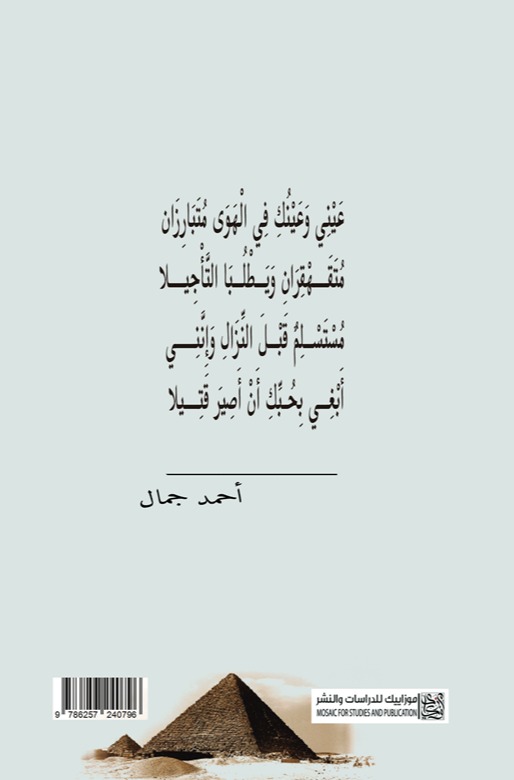 عَيْنِي وَعَيْنُكِ فِي الْهَوَى مُتَبَارِزَان
مُتَقَهْقِرَانِ وَيَطْلُبَا التَّأْجِيلا
مُسْتَسْلِمٌ قَبْلَ النِّزَالِ وَإِنَّنِي
أَبْغِي بِحُبِّكِ أَنْ أَصِيرَ قَتِيلا
أحمد جمال
موزاييك للدراسات والنشر
MOSAIC FOR STUDIES AND PUBLICATION
9 786257 240796